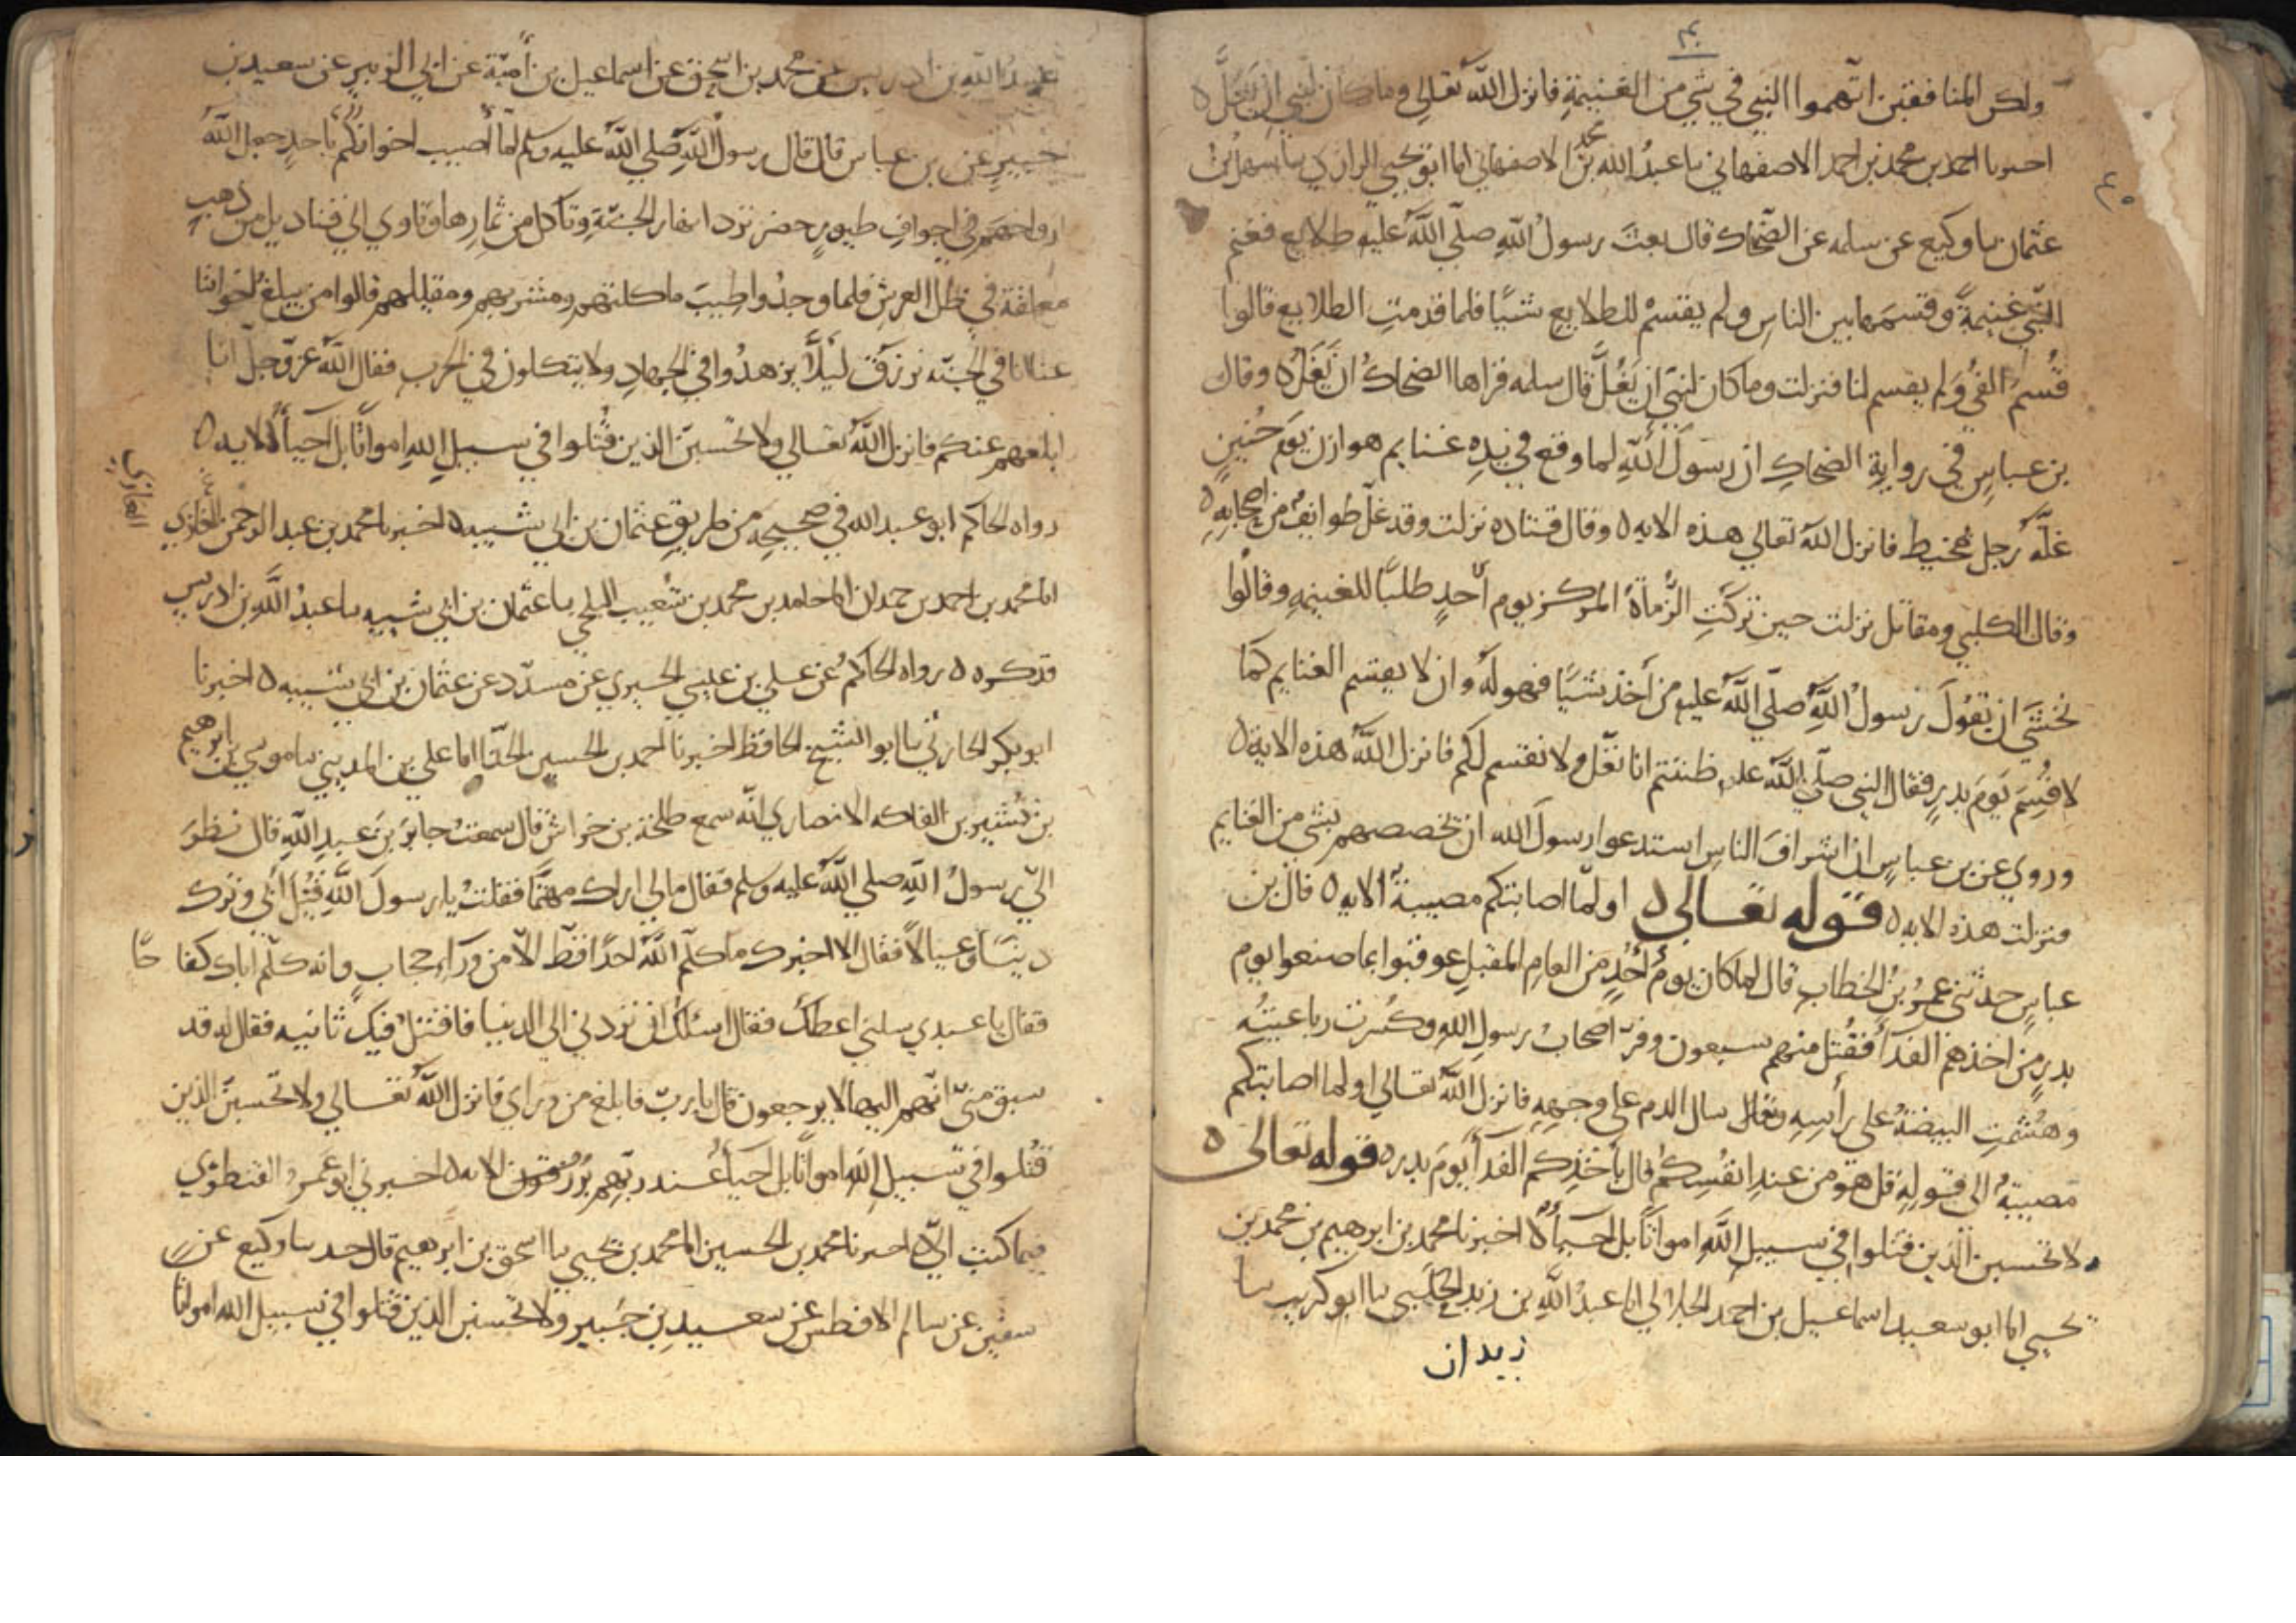 ٤٠
ولكن المنافقين اتّهموا النبي في شي من الغنيمةِ فانزل الله تعالي وما كان لنبي ان يَغُلَّ ٥
اخبرنا احمد بن محمد بن احمد الاصفهاني نا عبدُ الله بن محمد الاصفهاني انا ابو يحيي الرازي نا سهل بنُ
عثمان نا وكيع عن سلمه عن الضّحاك قال بعثَ رسولُ اللهِ صلّي اللهُ عليه طلايع فغنم
النّبيُ غنيمةً وقسمَها بين الناسِ ولم يقسمْ للطلايعِ شيًا فلما قدمتِ الطلايع قالوا
قُسِمَ الفيُ ولم يقسم لنا فنزلت وما كان لنبيّ ان يَغُلَّ قال سلمه قراها الضحاكُ ان يُغَلّ ٥ وقال
بن عباسٍ في روايةِ الضحاكِ ان رسولَ اللهِ لما وقع في يدِه غنايم هوازن يومَ حُنينٍ
غلّهُ رجل بمخيط فانزل اللهُ تعالي هذه الايه ٥ وقال قتاده نزلت وقد غلّ طوايفُ من اصحابِهِ ٥
وقال الكلبي ومقاتل نزلت حين تركَتِ الرُّماةُ المركز يوم أُحدٍ طلبًا للغنيمهِ وقالُوا
نخشَي ان يَقُولَ رسولُ اللهِ صلّي اللهُ عليه من أخذ شيًا فهو لهُ وان لا يقسم الغنايم كما
لا قُسِمَ يَومَ بدرٍ فقال النبي صلّي اللهُ عليه ظننتم انا نغّل ولا نقسم لكم فانزل اللهُ هذه الاية ٥
وروي عن بن عباسٍ ان اشرافَ الناسِ استدعوا رسولَ الله ان تخصصهم بشي من الغنايم
فنزلت هذه الايه ٥ قوله تعالى ٥ اولمّا اصابتكم مصيبةٌ الايه ٥ قال بن
عباسٍ حدثني عمرُ بنُ الخطاب قال لما كان يومُ أُحُدٍ من العامِ المقبلِ عوقبوا بما صنعوا يوم
بدرٍ من اخذهم الفدآَ فقُتل منهم سبعون وفرّ اصحابُ رسولِ اللهِ وكُسِرت رباعيتُه
وهُشمتِ البيضةُ علي رأسِهِ وسال الدم علي وجهِهِ فانزل اللهُ تعالي اولما اصابتكم
مصيبةٌ الى قولِهِ قل هو من عندِ انفُسِكُم قال باخذِكم الفدآَ يَومَ بدر ٥ قوله تعالى ٥
ولا تحسبن الذين قتلوا في سبيل اللهِ امواتًا بل أحيآءٌ ٥ اخبرنا محمد بن ابرهيم بن محمد بن
يحيي انا ابو سعيد اسماعيل بن احمد الخلالي انا عبدُ اللهِ بن زيد البجلي نا ابو كريب نا
زيدان
عبدُ اللهِ بن ادريس عن محمد بن اسحق عن اسماعيل بن أميّة عن ابي الزبير عن سعيد بن
جبيرٍ عن بن عباس قال قال رسولُ اللهِ صلي اللهُ عليه وسلم لما أصيب اخوانكم باحدٍ جعل اللهُ
ارواحهم في اجوافِ طيورٍ خضر ترد انهار الجنّةِ وتاكل من ثمارِها وتاوي الي قناديل من ذهبٍ
معلقة في ظل العرشِ فلما وجدُوا طِيبَ ماكلهم ومشربهم ومقيلهم قالوا من يبلغُ اخواننا
عنا انا في الجنّه نرزق لئلا يزهدُوا في الجهادِ ولا يتكلون في الحرب فقال اللهُ عزّ وجلّ انا
ابلغهم عنكم فانزل اللهُ تعالي ولا تحسبنّ الذين قُتلوا في سبيلِ اللهِ امواتًا بل أحيآءٌ الايه ٥
رواه الحاكم ابو عبد الله في صحيحِه من طريقِ عثمان بن ابي شيبه ٥ اخبرنا محمد بن عبد الرحمن الغازي
الغازي
انا محمد بن احمد بن حمدان انا حامد بن محمد بن شُعيب البلخي نا عثمان بن ابي شيبه نا عبدُ اللهِ بن ادريس
فذكره ٥ رواه الحاكمُ عن علي بن عيسي الحيري عن مسدّد عن عثمان بن ابي شيبه ٥ اخبرنا
ابو بكر الحارثي نا ابو الشيخ الحافظ اخبرنا احمد بن الحسين الحذّا انا علي بن المديني نا موسي بن ابرهيم
بن بشير بن الفاكه الانصاري انّه سمع طلحة بن خراش قال سمعتُ جابرَ بنَ عبدِ اللهِ قال نظرَ
اليّ رسولُ اللهِ صلي اللهُ عليه وسلم فقال مالي اراك مهتمًّا فقلتُ يا رسولَ اللهِ قُتِل أبي وترك
دينًا وعيالًا فقال الا اخبرك ما كلّم اللهُ احدًا قطّ الا من وَرآءِ حجابٍ وانه كلّم اباك كفاحًا
فقال يا عبدي سلني اعطكَ فقال اسئلكَ ان تردني الي الدنيا فاقتلُ فيك ثانيه فقال انه قد
سبق منّي انّهم اليها لا يرجعون قال يا ربّ فابلغ من وراي فانزل اللهُ تعالي ولا تحسبنّ الذين
قُتلوا في سبيلِ اللهِ امواتًا بل احيآءٌ عند ربّهم يُرزقون الايه ٥ اخبرني ابو عَمرو القنطري
فيما كتب اليّ ٥ اخبرنا محمد بن الحسين انا محمد بن يحيي نا اسحق بن ابرهيم قال حد نا وكيع عن
سفين عن سالم الافطس عن سعيدِ بنِ جُبير ولا تحسبن الذين قتلوا في سبيل الله امواتًا